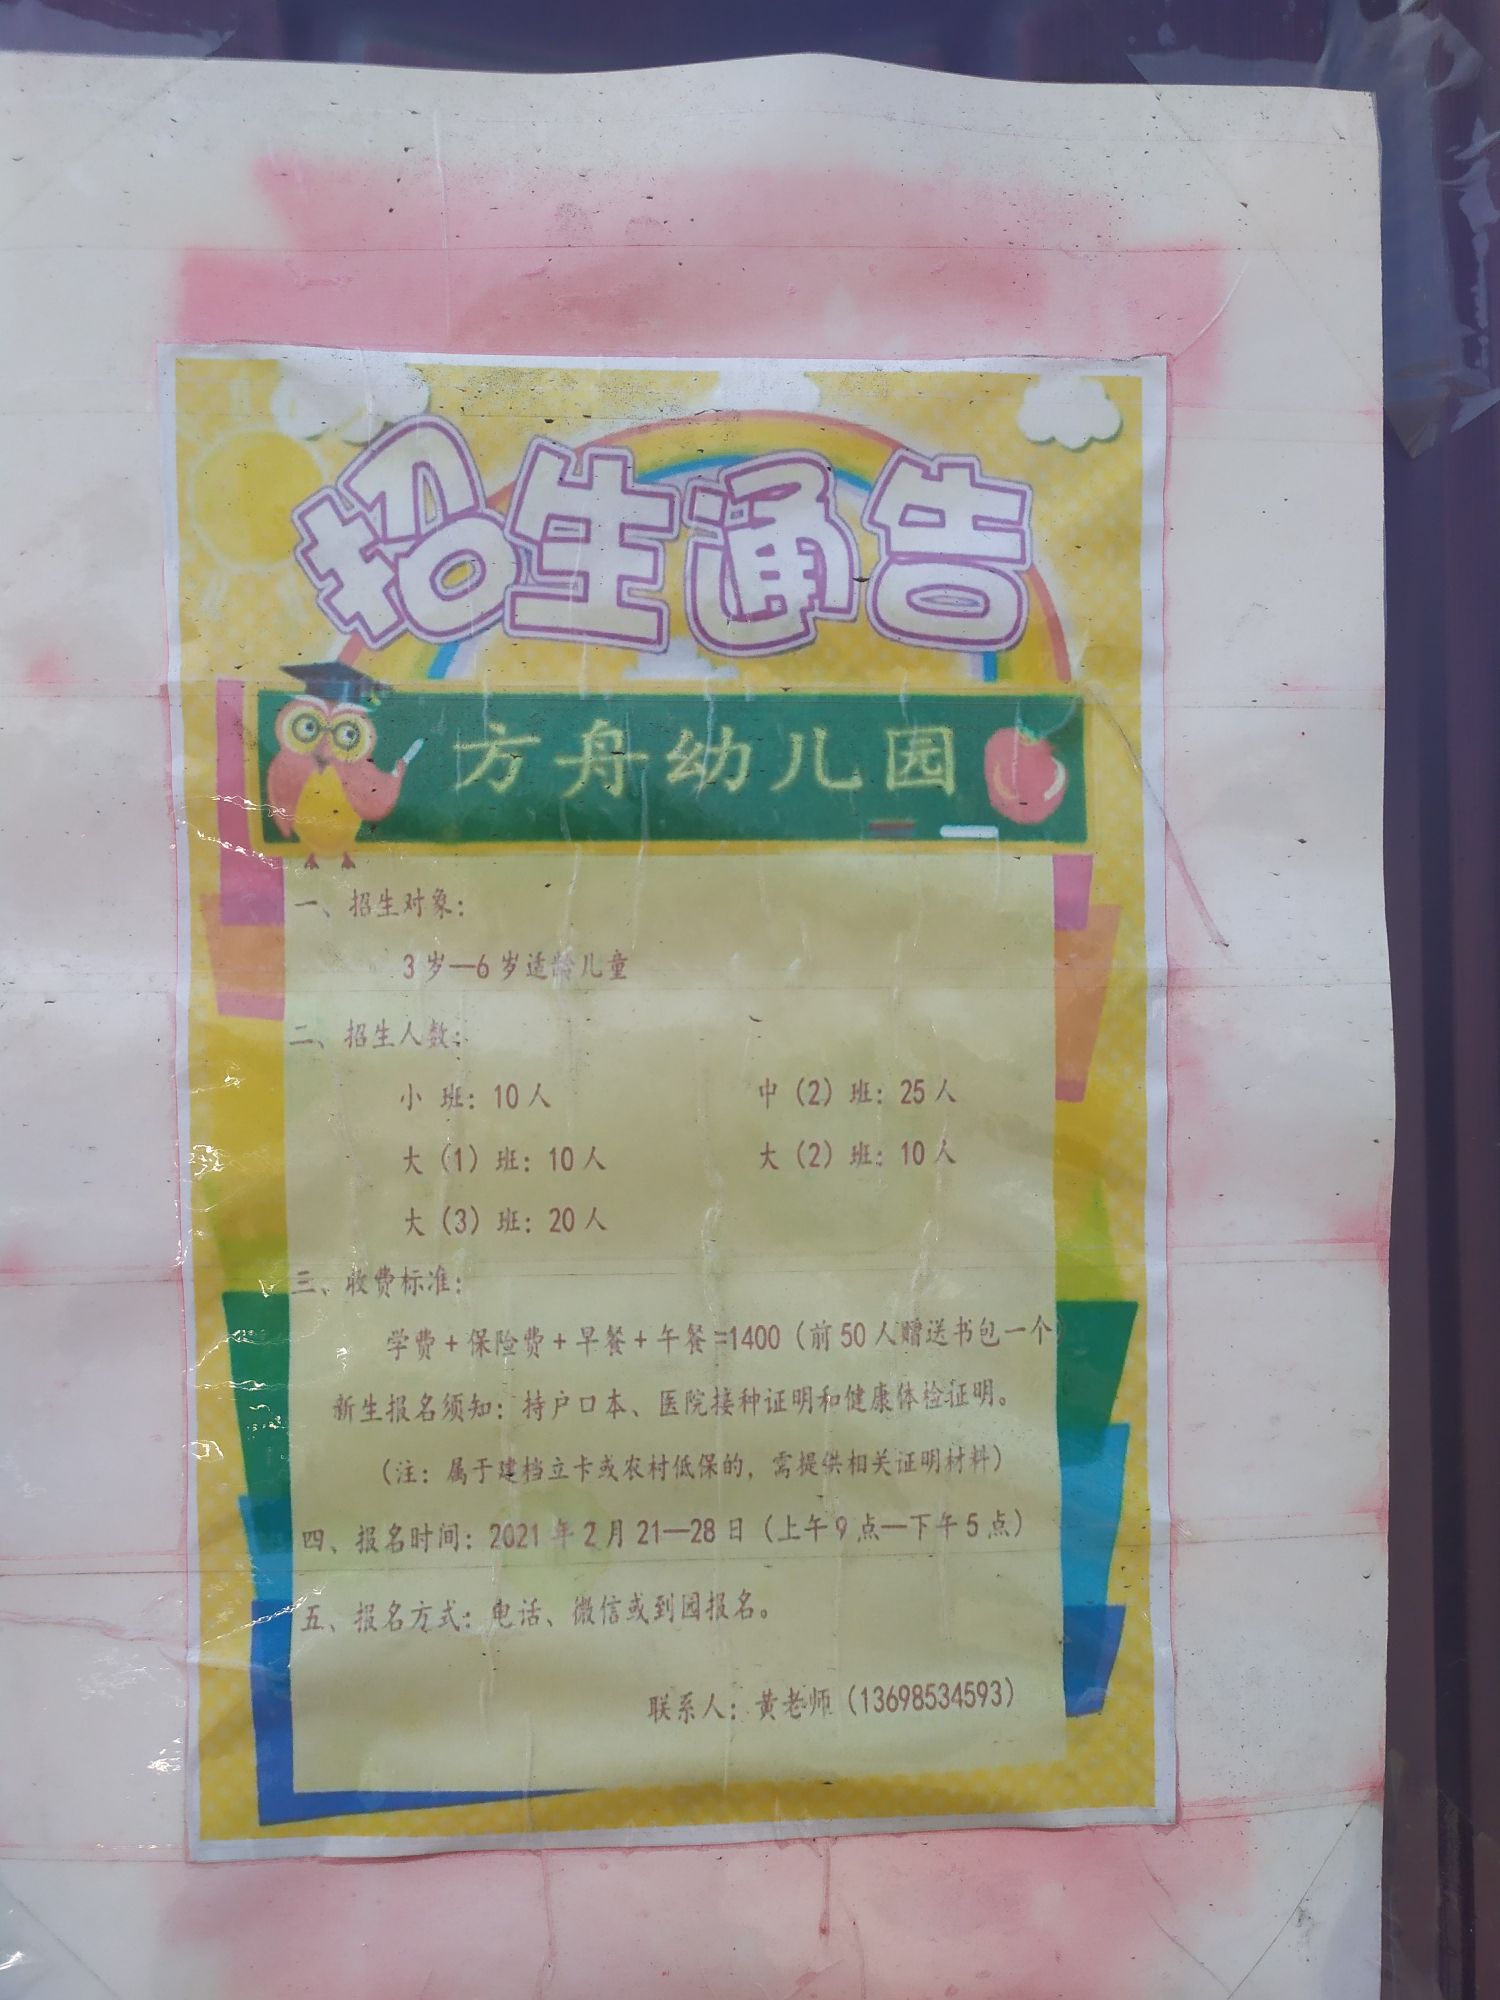 招生通告
方舟幼儿园
一、招生对象：
3岁—6岁适龄儿童
二、招生人数：
小 班：10人 中（2）班：25人
大（1）班：10人 大（2）班：10人
大（3）班：20人
三、收费标准：
学费+保险费+早餐+午餐=1400（前50人赠送书包一个）
新生报名须知：持户口本、医院接种证明和健康体检证明。
（注：属于建档立卡或农村低保的，需提供相关证明材料）
四、报名时间：2021年2月21—28日（上午9点—下午5点）
五、报名方式：电话、微信或到园报名。
联系人：黄老师（13698534593）